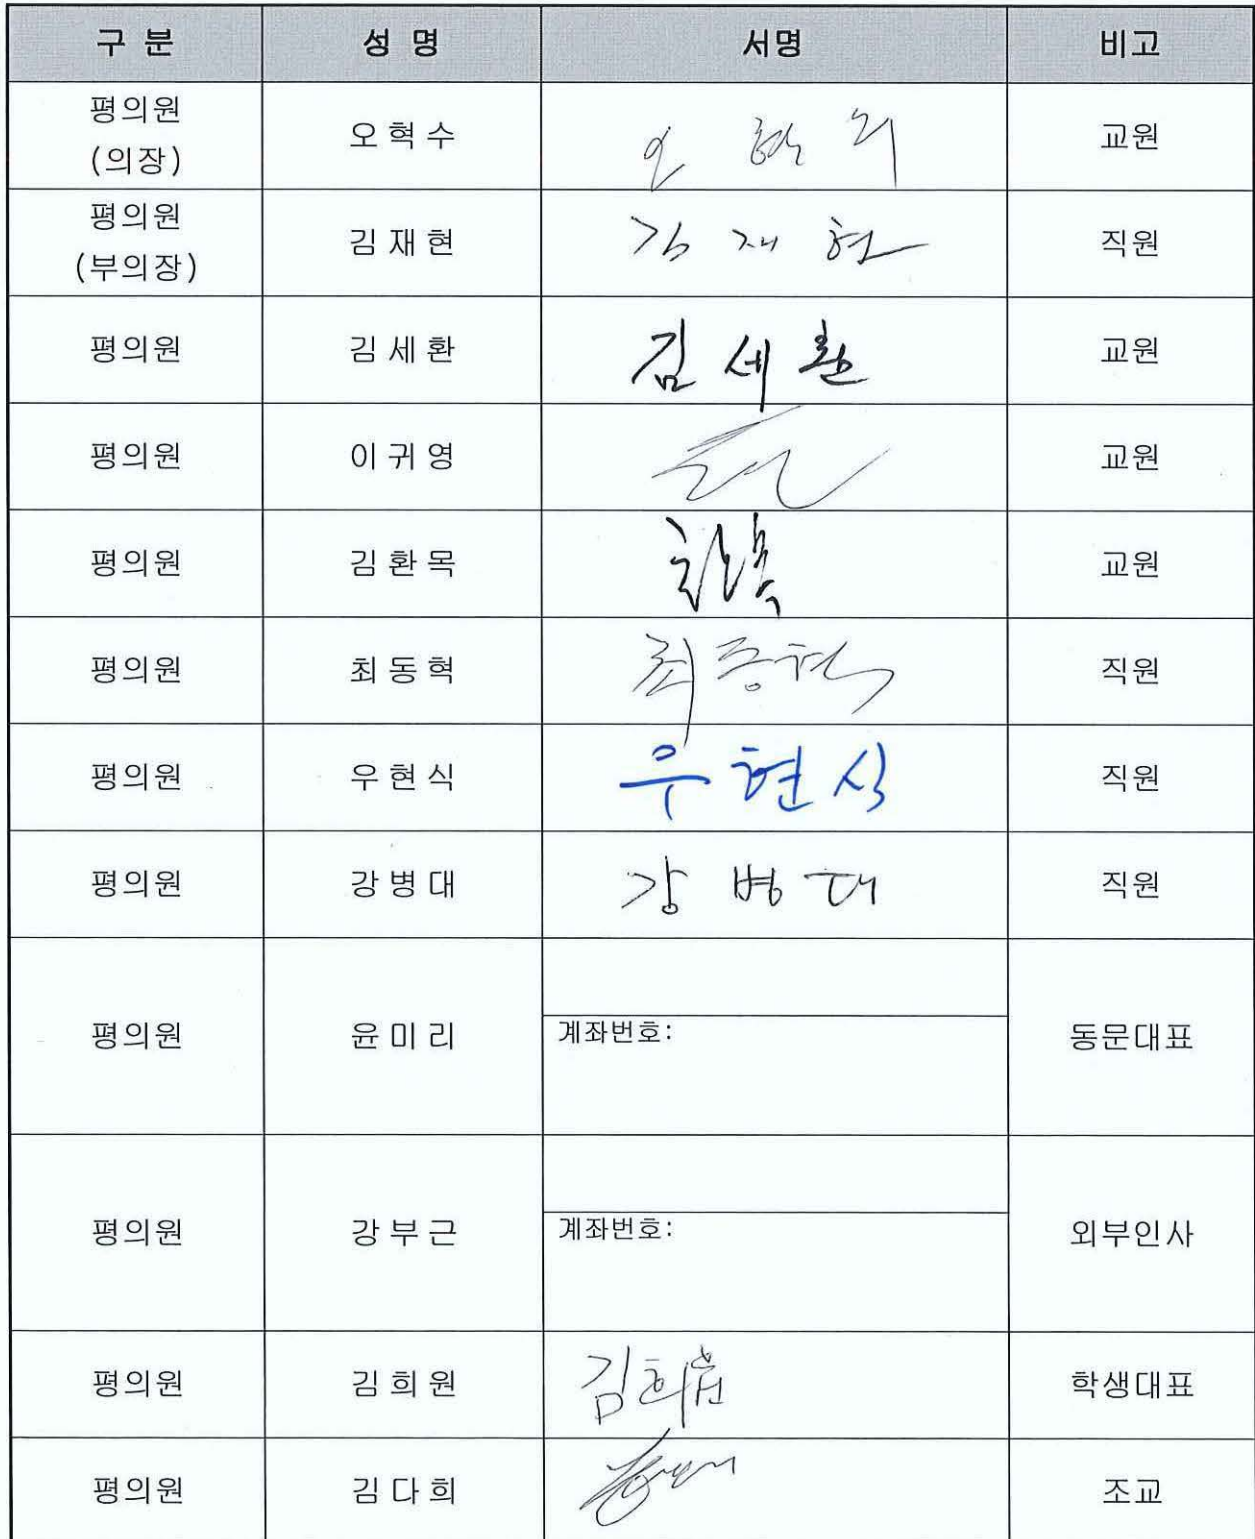 구 분 성 명 서명 비고
평의원
(의장) 오 혁 수 교원
평의원
(부의장) 김 재 현 김 재 현 직원
평의원 김 세 환 김 세 환 교원
평의원 이 귀 영 교원
평의원 김 환 목 교원
평의원 최 동 혁 직원
평의원 우 현 식 우 현 식 직원
평의원 강 병 대 강 병 대 직원
평의원 윤 미 리 계좌번호: 동문대표
평의원 강 부 근 계좌번호: 외부인사
평의원 김 희 원 김희원 학생대표
평의원 김 다 희 조교